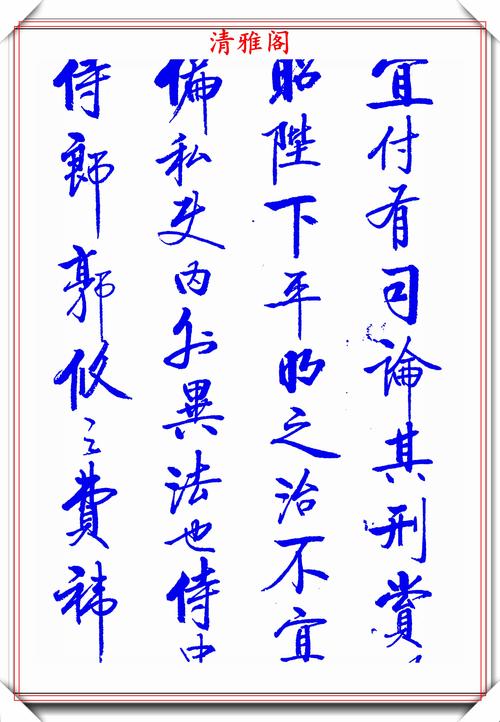 清雅阁
宜付有司論其刑賞
昭陛下平明之治不宜
偏私使内外異法也侍中
侍郎郭攸之費禕